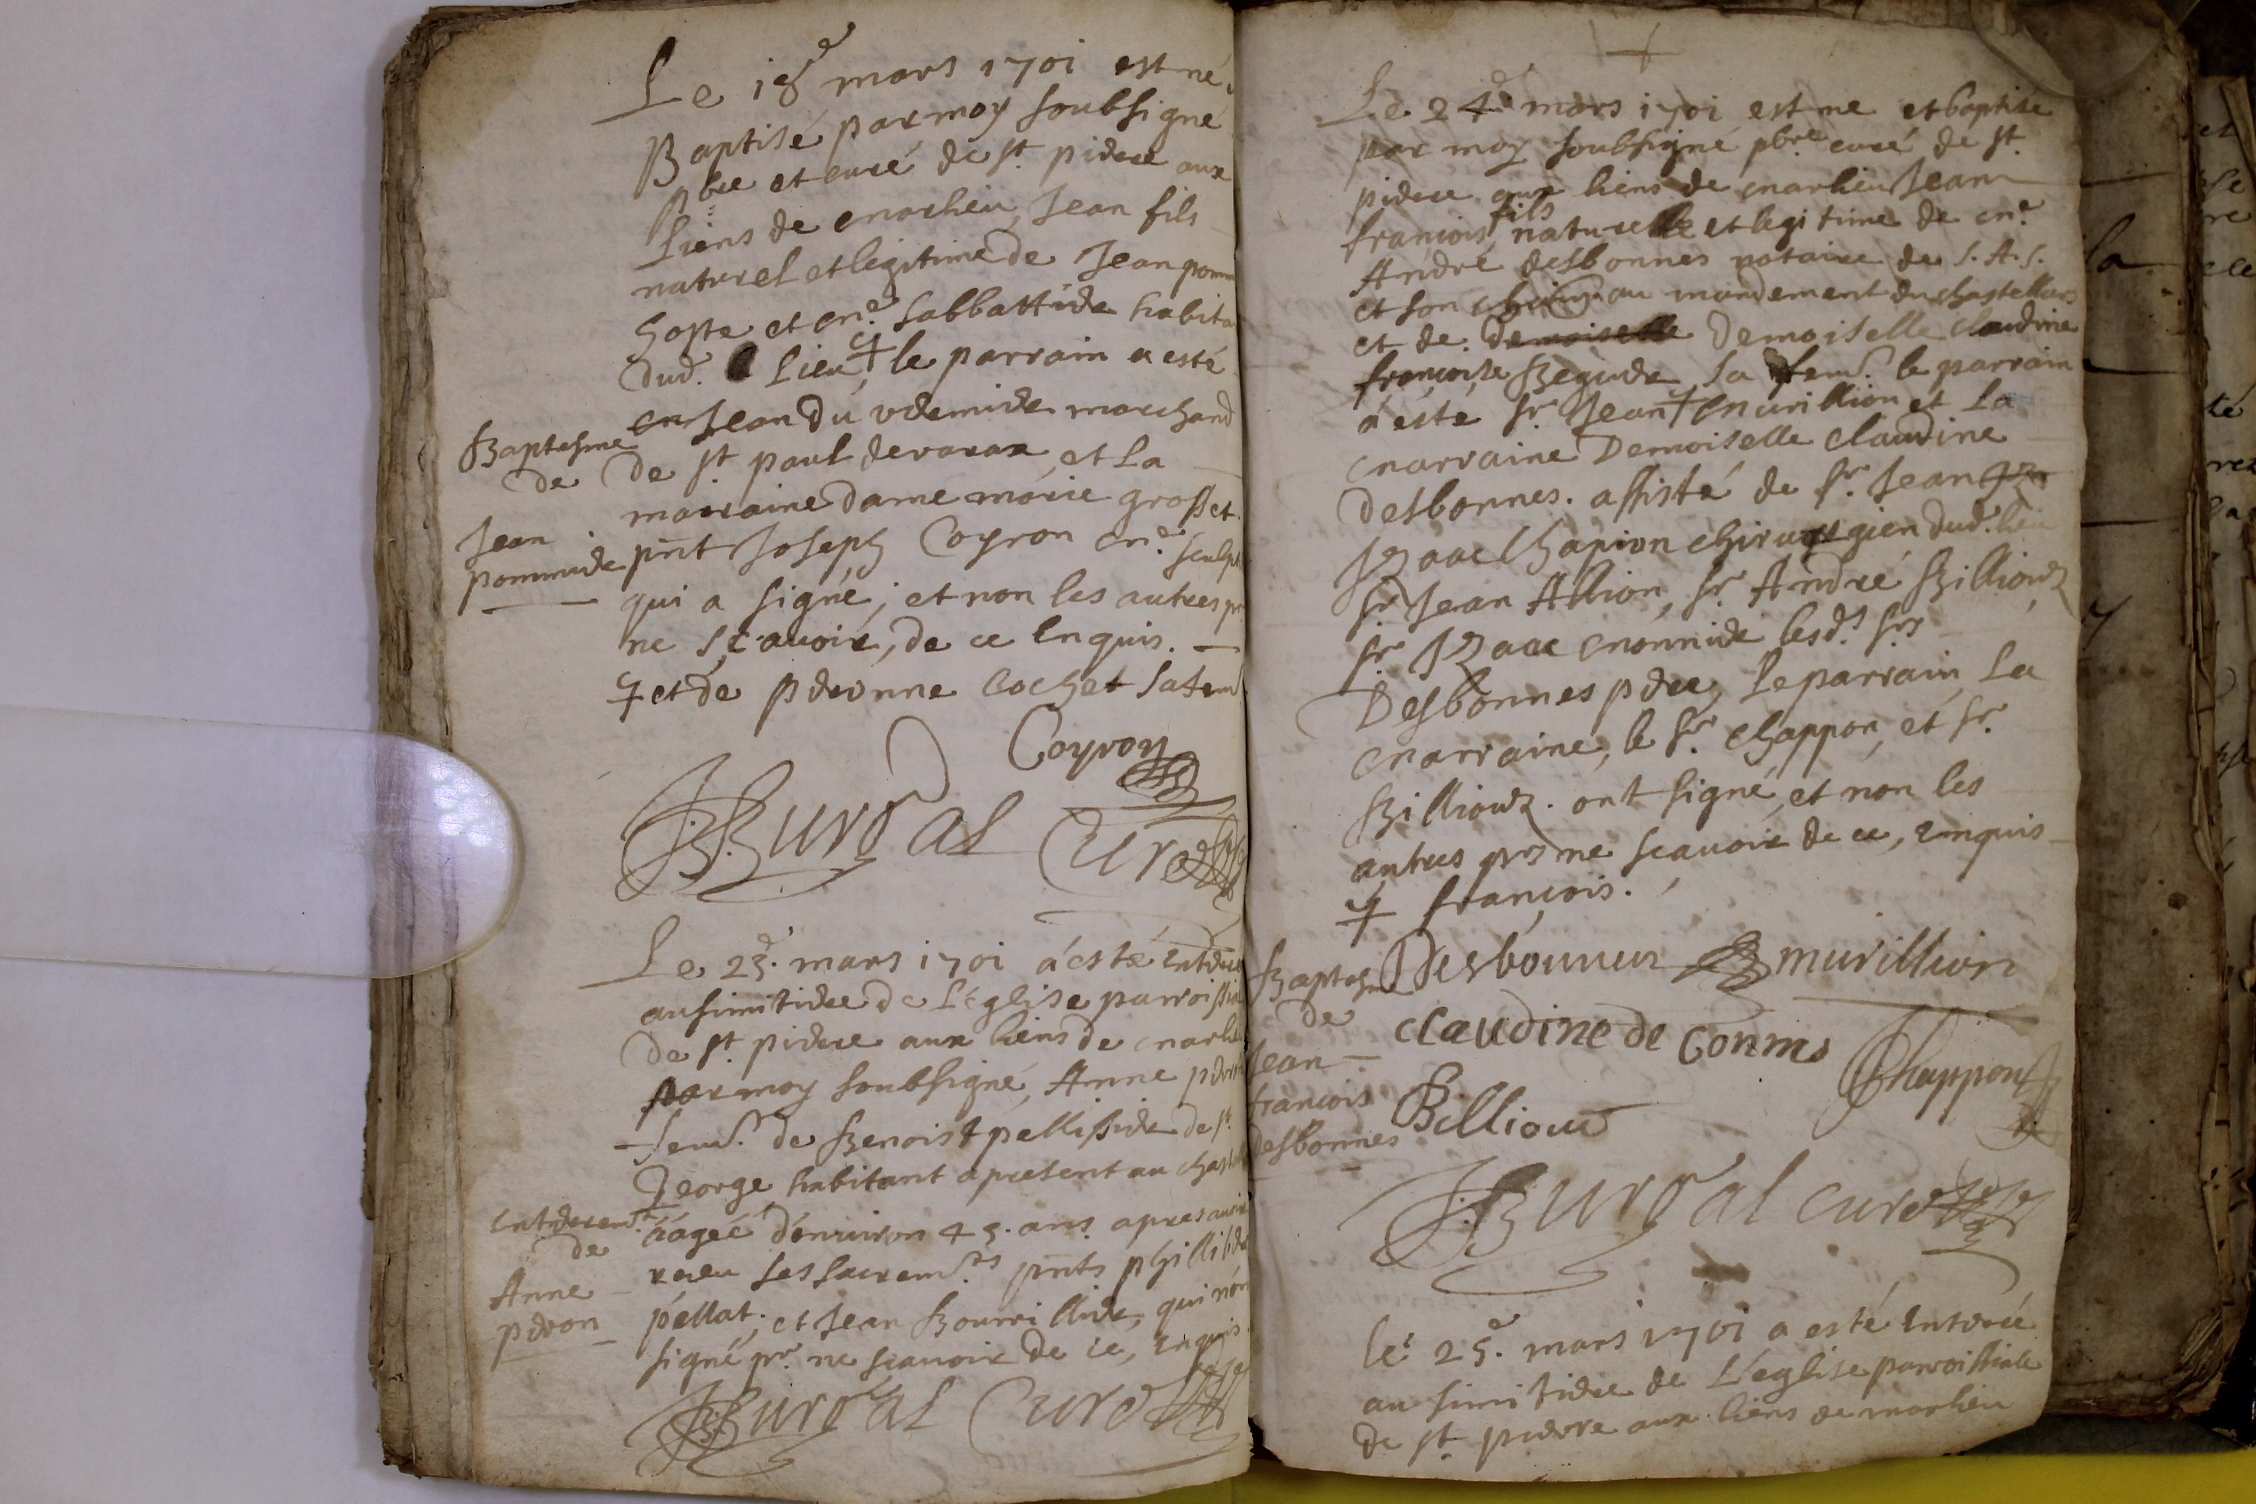 Le 18e mars 1701 est né
Baptisé par moy soubsigné
pbre et curé de st pierre aux
liens de marlieu, Jean fils
naturel et legitime de Jean pomm
hoste et me sabbattier habita
dud. lieu, le parrain a esté
mr Jean du vernier marchand
de st paul de varax, et la
marraine dame marie grosset
pnt Joseph Coyron me sculpt
qui a signé, et non les autres pr
ne scavoir, de ce enquis.
et de pieronne cochet sa fem
Baptesme
de
Jean
pommier
Coyron
JBurgal Curé
Le 23e mars 1701 a esté enterré
au simitiere de l'eglise parroissia
de st pierre aux liens de marli
par moy soubsigné, Anne peron
fem. de Benoist pellissier de st
george habitant a present au chast
aagée d'enuiron 45. ans apres auoir
receu ses sacremts pnts phillib
pellat, et Jean Bourrillier, qui n'on
signé pr ne scavoir de ce, enquis.
Enterremt
de
Anne
peron
JBurgal Curé
Le 24e mars 1701 est ne et baptisé
par moy soubsigné pbre curé de st
pierre aux liens de marlieu Jean
francois fils naturelle et legitime de me
André desbonnes notaire de S. A. S.
et son au mandement du chastellars
et de demoiselle Demoiselle claudine
francoise Begude, sa fem. le parrain
a esté sr Jean murillion et la
marraine Demoiselle claudine
desbonnes. assisté de sr Jean
Izaac Chapion chirurgien dud. lieu
sr Jean Allion, sr André Billioud
sr Izaac monnier lesds srs
Desbonnes pere, le parrain, la
marraine, le sr chappon, et sr
Billioud. ont signé, et non les
autres pr ne scavoir de ce, enquis
francois.
Baptesme
de
Jean
francois
desbonnes
Desbonnes murillion
claudine de bonnes
Chappon
Billioud
JBurgal curé
le 25e mars 1701 a esté enterré
au simitiere de l'eglise parroissiale
de st pierre aux liens de marlieu